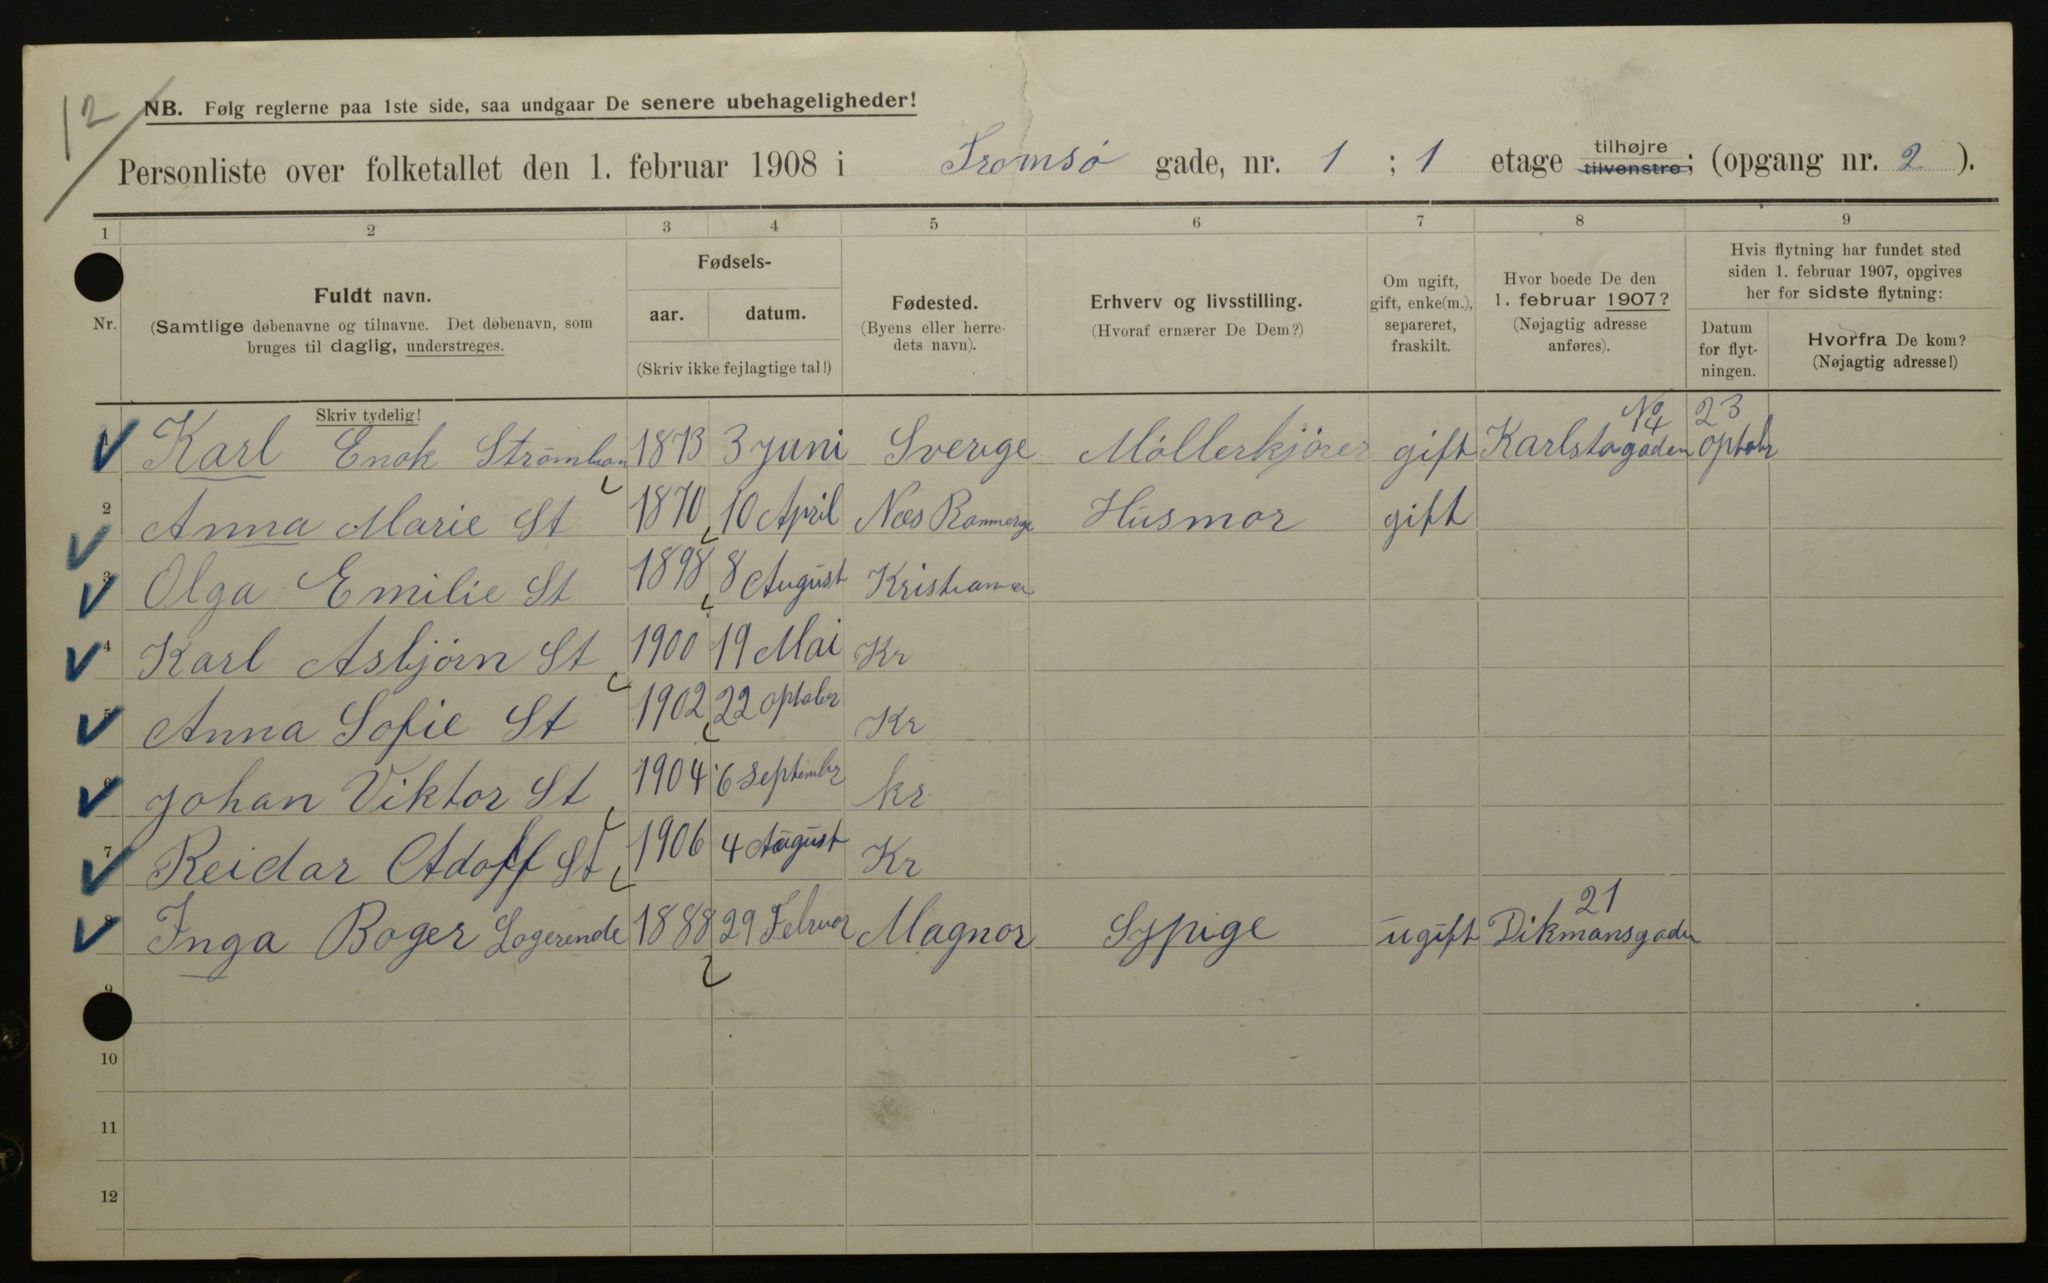 12
NB. Følg reglerne paa 1ste side, saa undgaar De senere ubehageligheder!
Personliste over folketallet den 1. februar 1908 i Tromsø gade, nr. 1 ; 1 etage tilhøjre tilvenstre; (opgang nr. 2 ).
1 2 3 4 5 6 7 8 9
Nr.
Fuldt navn.
(Samtlige døbenavne og tilnavne. Det døbenavn, som
bruges til daglig, understreges.
Fødsels-
aar. datum.
(Skriv ikke fejlagtige tal!)
Fødested.
(Byens eller herre-
dets navn).
Erhverv og livsstilling.
(Hvoraf ernærer De Dem?)
Om ugift,
gift, enke(m.),
separeret,
fraskilt.
Hvor boede De den
1. februar 1907?
(Nøjagtig adresse
anføres).
Hvis flytning har fundet sted
siden 1. februar 1907, opgives
her for sidste flytning:
Datum
for flyt-
ningen.
Hvorfra De kom?
(Nøjagtig adresse!)
Skriv tydelig!
Karl Enok 1873 3 juni Sverige Møllerkjører gift No 4 23
2 Anna Marie St 1870 10 April Næs Husmor gift
3 Olga Emilie St 1898 8 August Kristiania
4 Karl Asbjørn St 1900 19 Mai Kr
5 Anna Sofie St 1902 22 optober Kr
6 Johan Viktor St 1904 6 september kr
7 Reidar Adolf St 1906 4 August Kr
8 Inga Boger Logerende 1888 29 Februar Magnor Sypige ugift 21 Dikmansgaden
9
10
11
12